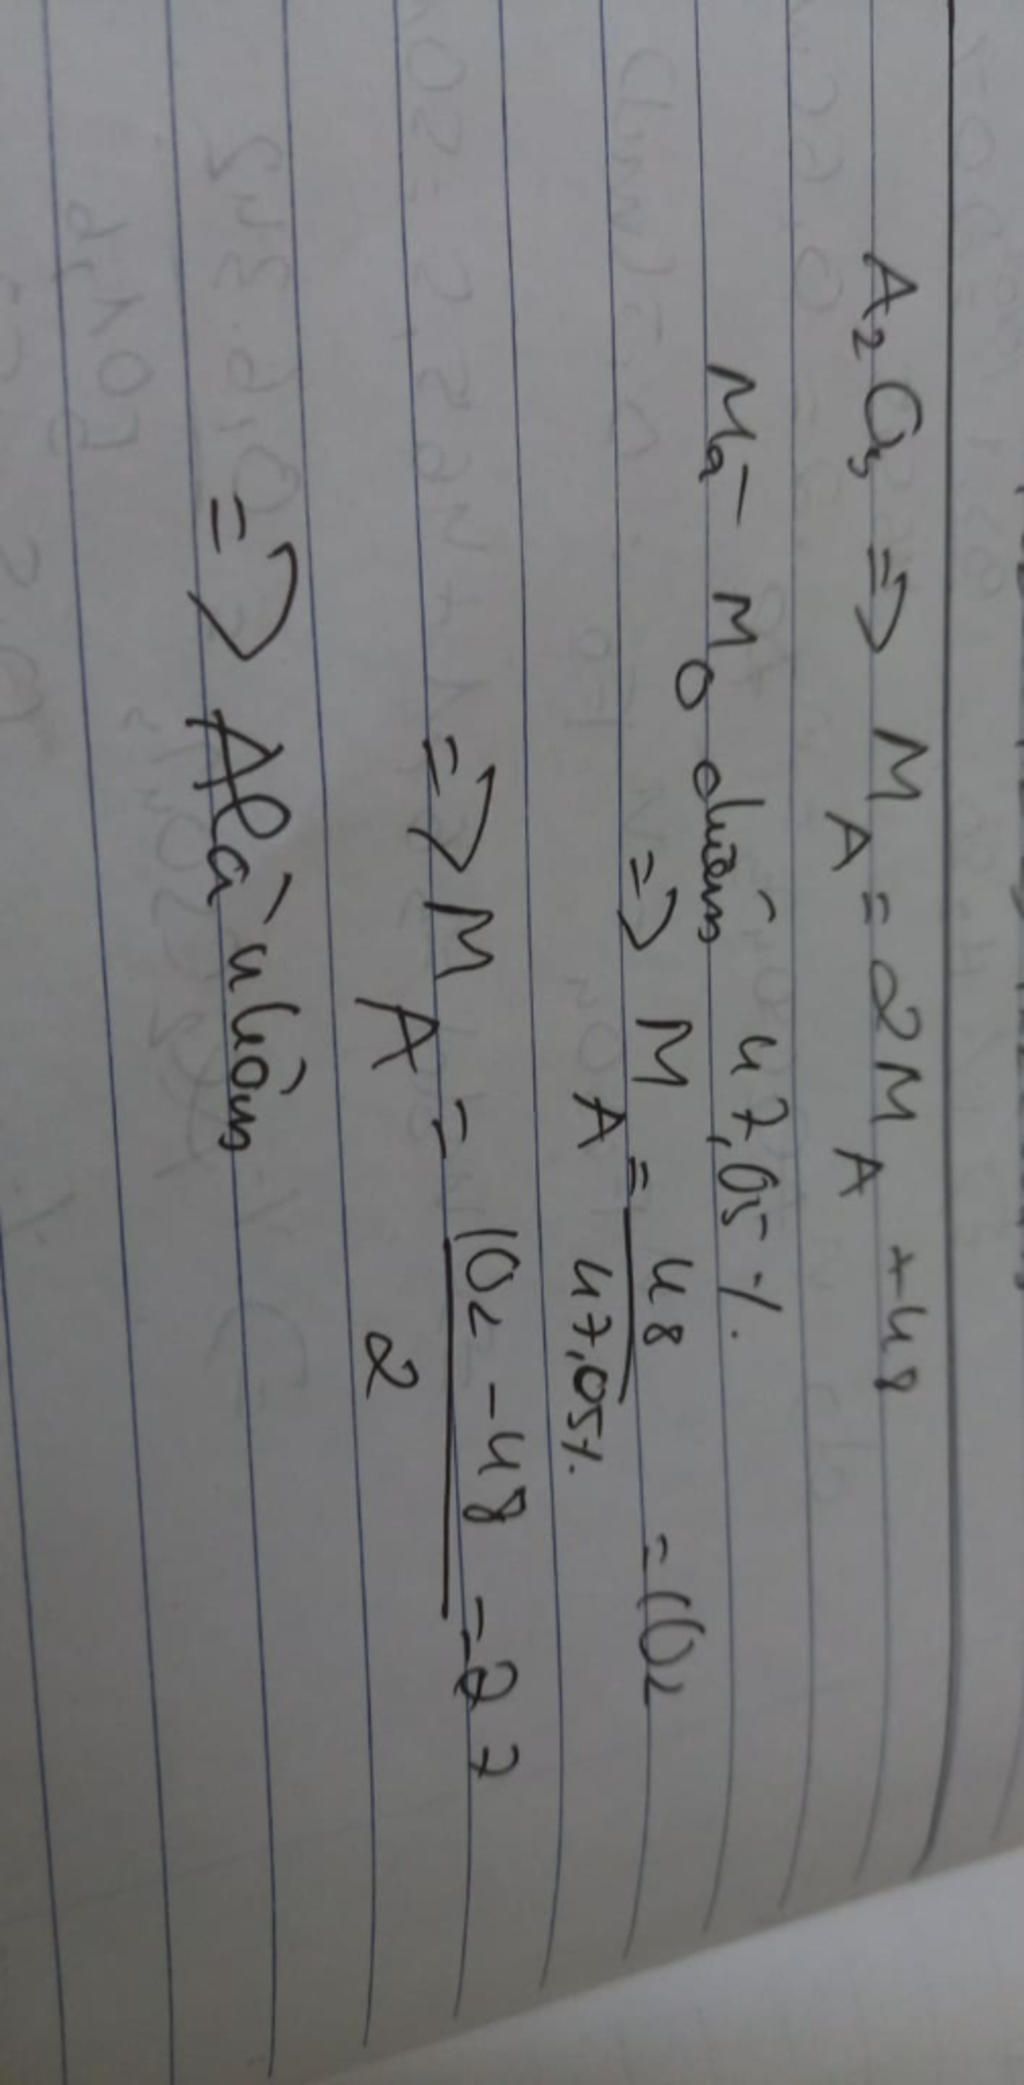 A2O3 => M A = 2M A + 48
Mà M O chiếm 47,05%
=> M A = 48 / 47,05% = 102
=> M A = 102 - 48 / 2 = 27
=> A là nhôm